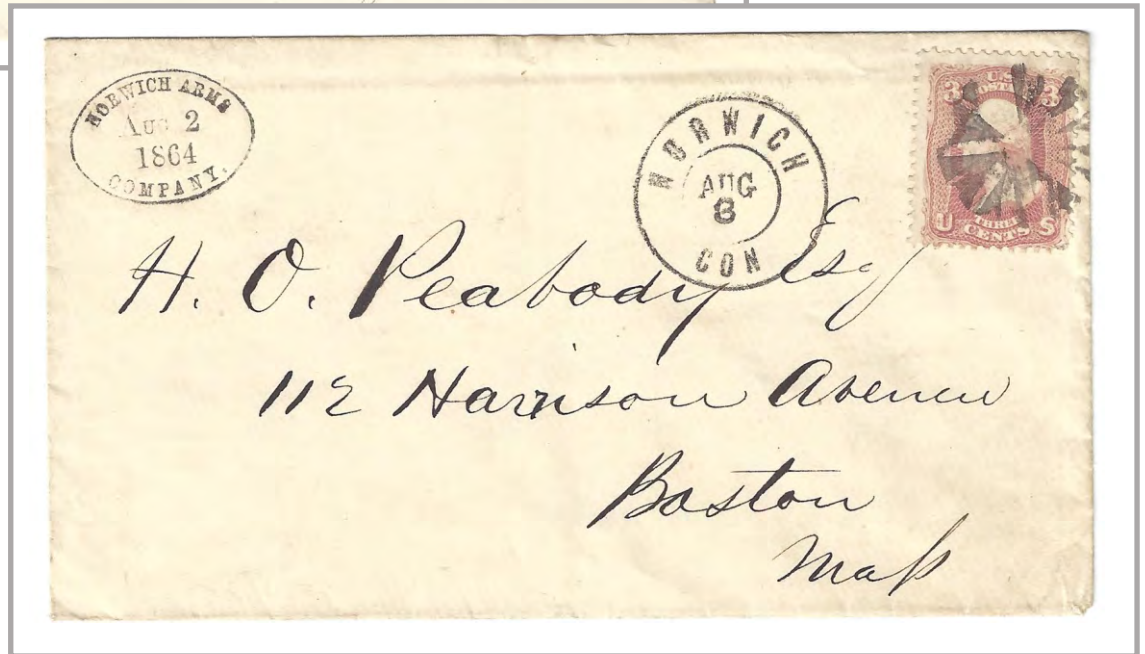 NORWICH ARMS
AUG 2
1864
COMPANY.
NORWICH
AUG
8
CON
3 3
U S
THREE
CENTS
H. O. Peabody Esq
112 Harrison Avenue
Boston
Mass